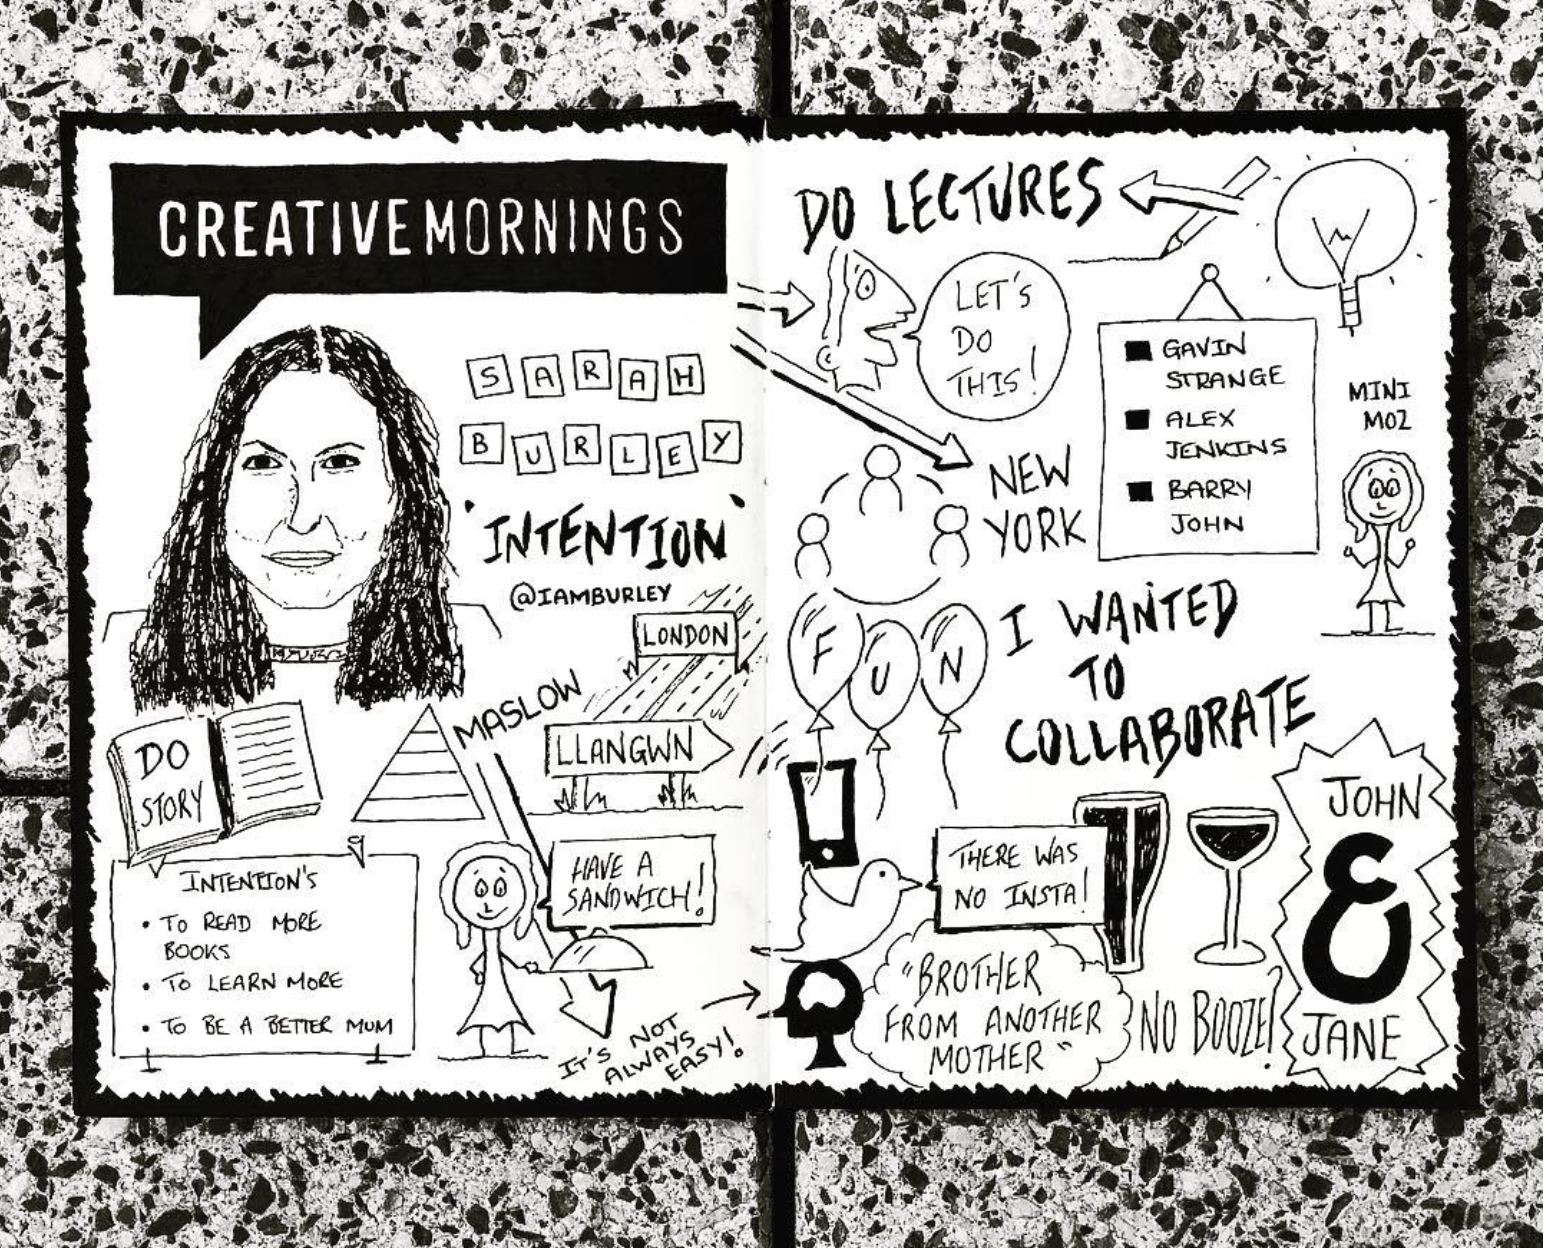 CREATIVEMORNINGS
SARAH
BURLEY
'INTENTION'
@IAMBURLEY
LONDON
MASLOW
LLANGWN
DO
STORY
INTENTION'S
• TO READ MORE
BOOKS
• TO LEARN MORE
• TO BE A BETTER MUM
HAVE A
SANDWICH!
IT'S NOT
ALWAYS
EASY!
DO LECTURES
LET'S
DO
THIS!
GAVIN
STRANGE
ALEX
JENKINS
BARRY
JOHN
MINI
MOZ
NEW
YORK
FUN
I WANTED
TO
COLLABORATE
THERE WAS
NO INSTA!
"BROTHER
FROM ANOTHER
MOTHER"
NO BOOZE!?
JOHN
&
JANE